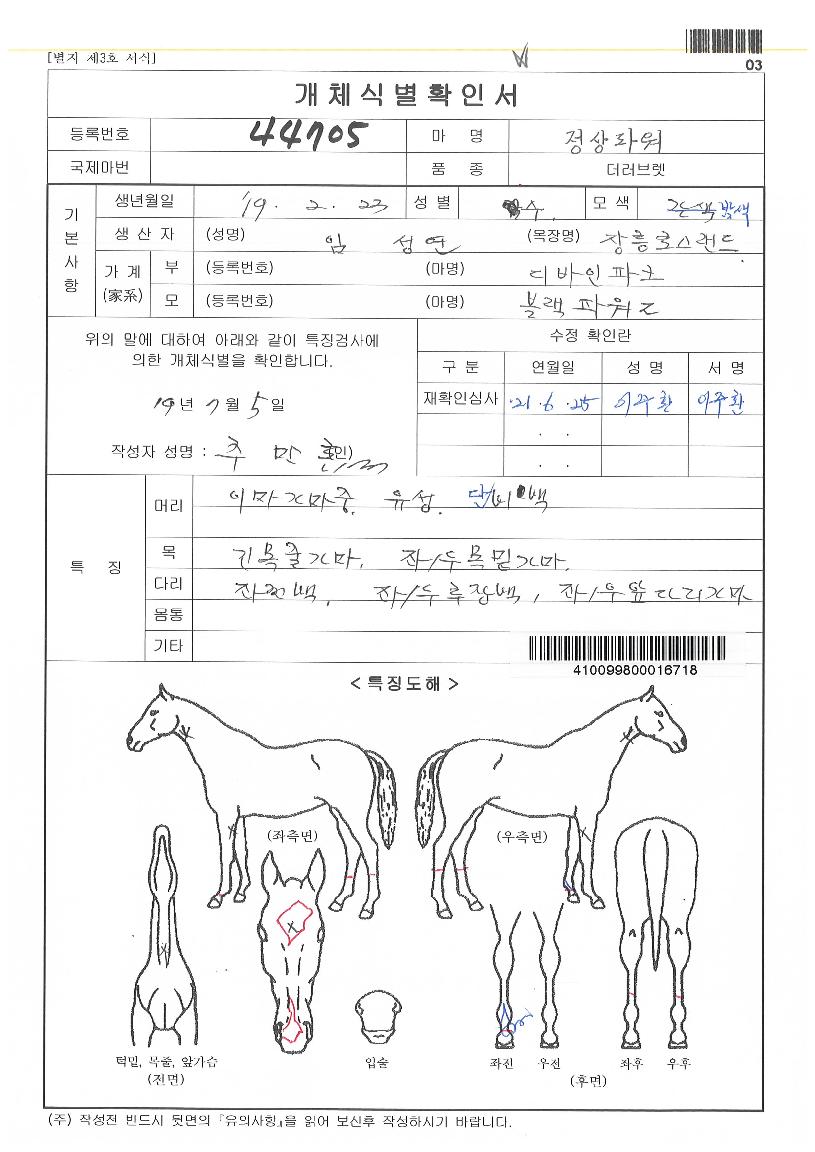 [별지 제3호 서식]
03
개체식별확인서
등록번호 44705 마 명 정상파워
국제마번 품 종 더러브렛
기본사항
생년월일 '19. 2. 23 성별 수 모색 밤색
생산자 (성명) 임 성연 (목장명) 장흥로스랜드
가계(家系) 부 (등록번호) (마명) 디바인파크
모 (등록번호) (마명) 블랙파워즈
위의 말에 대하여 아래와 같이 특징검사에
의한 개체식별을 확인합니다.
19년 7월 5일
작성자 성명 : 추 만 (인)
수정 확인란
구 분 연월일 성 명 서 명
재확인심사 '21. 6. 25 이주환 이주환
. .
. .
특 징
머리 이마가마중, 유성, 단비백
목 긴목줄가마, 좌/우목밑가마,
다리 좌전백, 좌/우후장백, 좌/우앞다리가마
몸통
기타
410099800016718
< 특징도해 >
(좌측면) (우측면)
턱밑, 목줄, 앞가슴
(전면)
입술
좌전 우전 좌후 우후
(후면)
(주) 작성전 반드시 뒷면의 『유의사항』을 읽어 보신후 작성하시기 바랍니다.